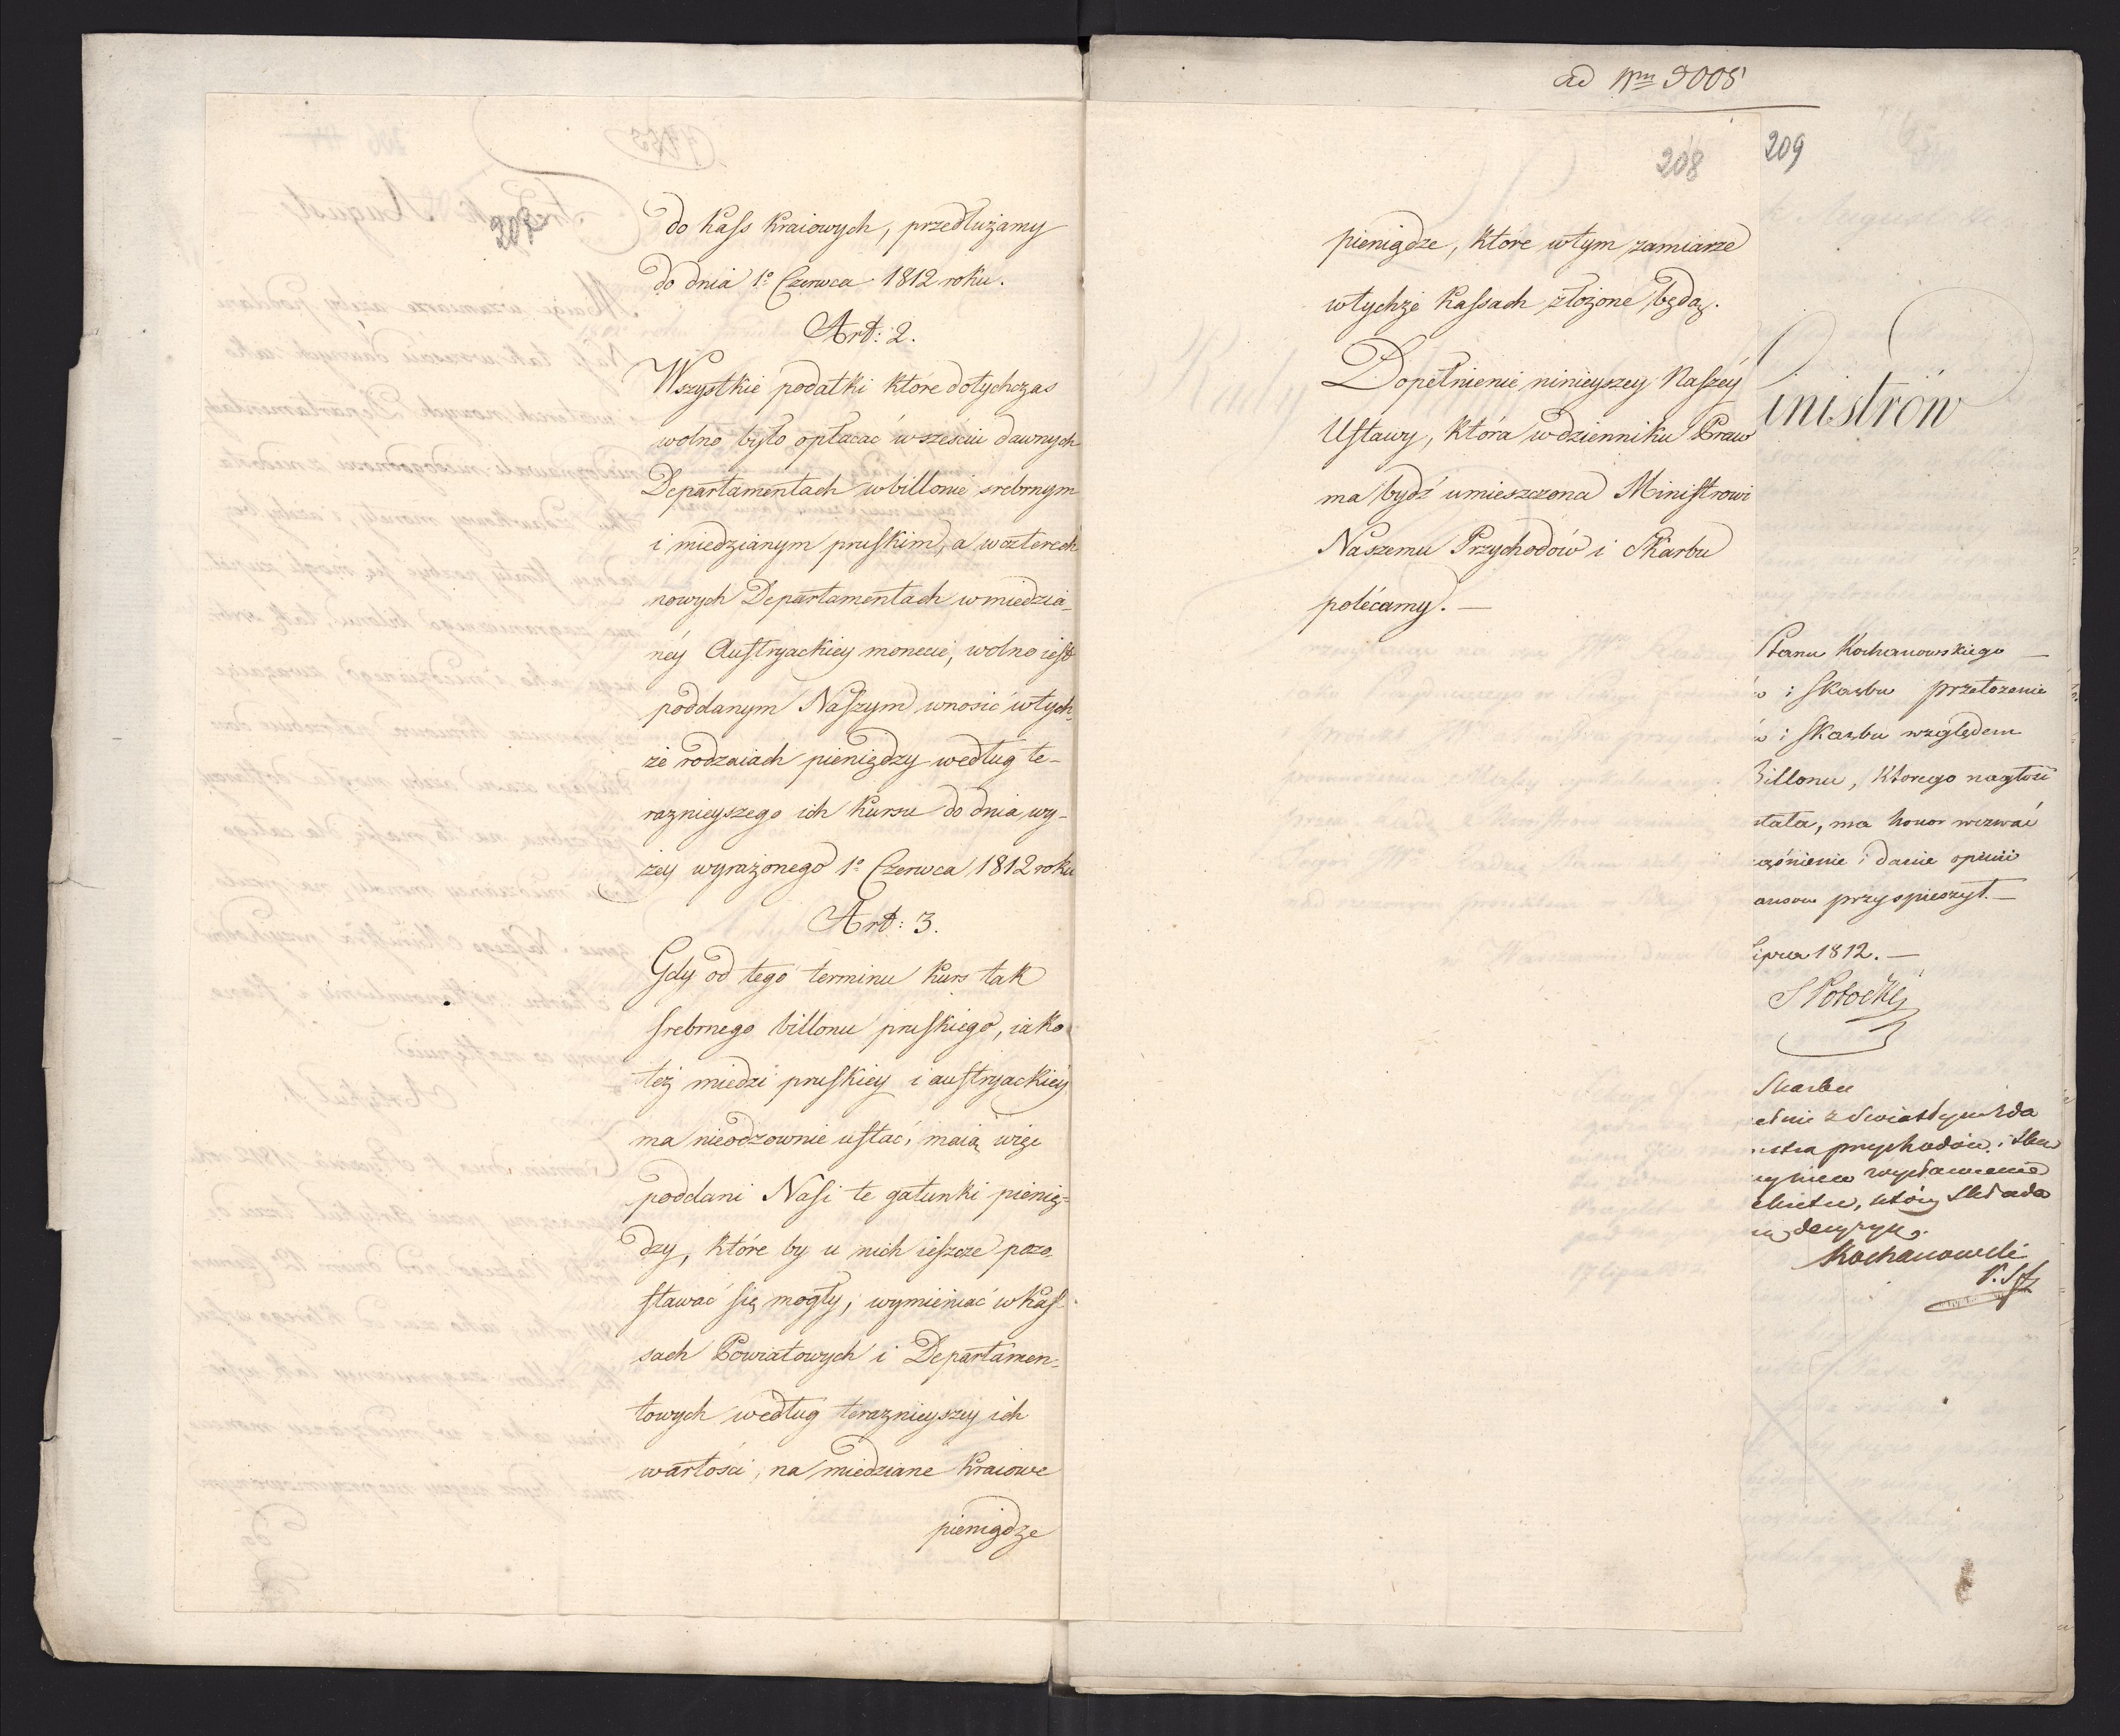 207
do kass kraiowych, przedłużamy
do dnia 1º Czerwca 1812 roku.
Art: 2.
Wszystkie podatki które dotychczas
wolno było opłacać w sześciu dawnych
Departamentach w billonie srebrnym
i miedzianym pruskim, a w czterech
nowych Departamentach w miedzia-
ney Austryackiey monecie, wolno iest
poddanym Naszym wnosić w tych-
że rodzaiach pieniędzy według te-
raznieyszego ich kursu do dnia wy-
żey wyrażonego 1º Czerwca 1812 roku
Art: 3.
Gdy od tego terminu kurs tak
srebrnego billonu pruskiego, iako
też miedzi pruskiey i austryackiey
ma nieodzownie ustać, maią więc
poddani Nasi te gatunki pienię-
dzy, które by u nich ieszcze pozo-
stawać się mogły, wymieniać w kas-
sach Powiatowych i Departamen-
towych według teraznieyszey ich
wartości, na miedziane kraiowe
pieniądze
ad Nrm 9005
208
209
pieniądze, które w tym zamiarze
w tychże kassach złożone będą.
Dopełnienie ninieyszey Naszey
Ustawy, która w dzienniku Praw
ma bydź umieszczona Ministrowi
Naszemu Przychodów i Skarbu
polécamy. —
inistrów
Stanu Kochanowskiego —
i Skarbu przełożenie
i Skarbu względem
Billonu, którego nagłość
stała, ma honor wezwać
aśnienie i danie opinii
ansow przyspieszył. —
Lipca 1812. —
S Potocki
Skarbu
przychodów i Skar
wystawienie
, który składa
decyzyę.
Kochanowski
R. St